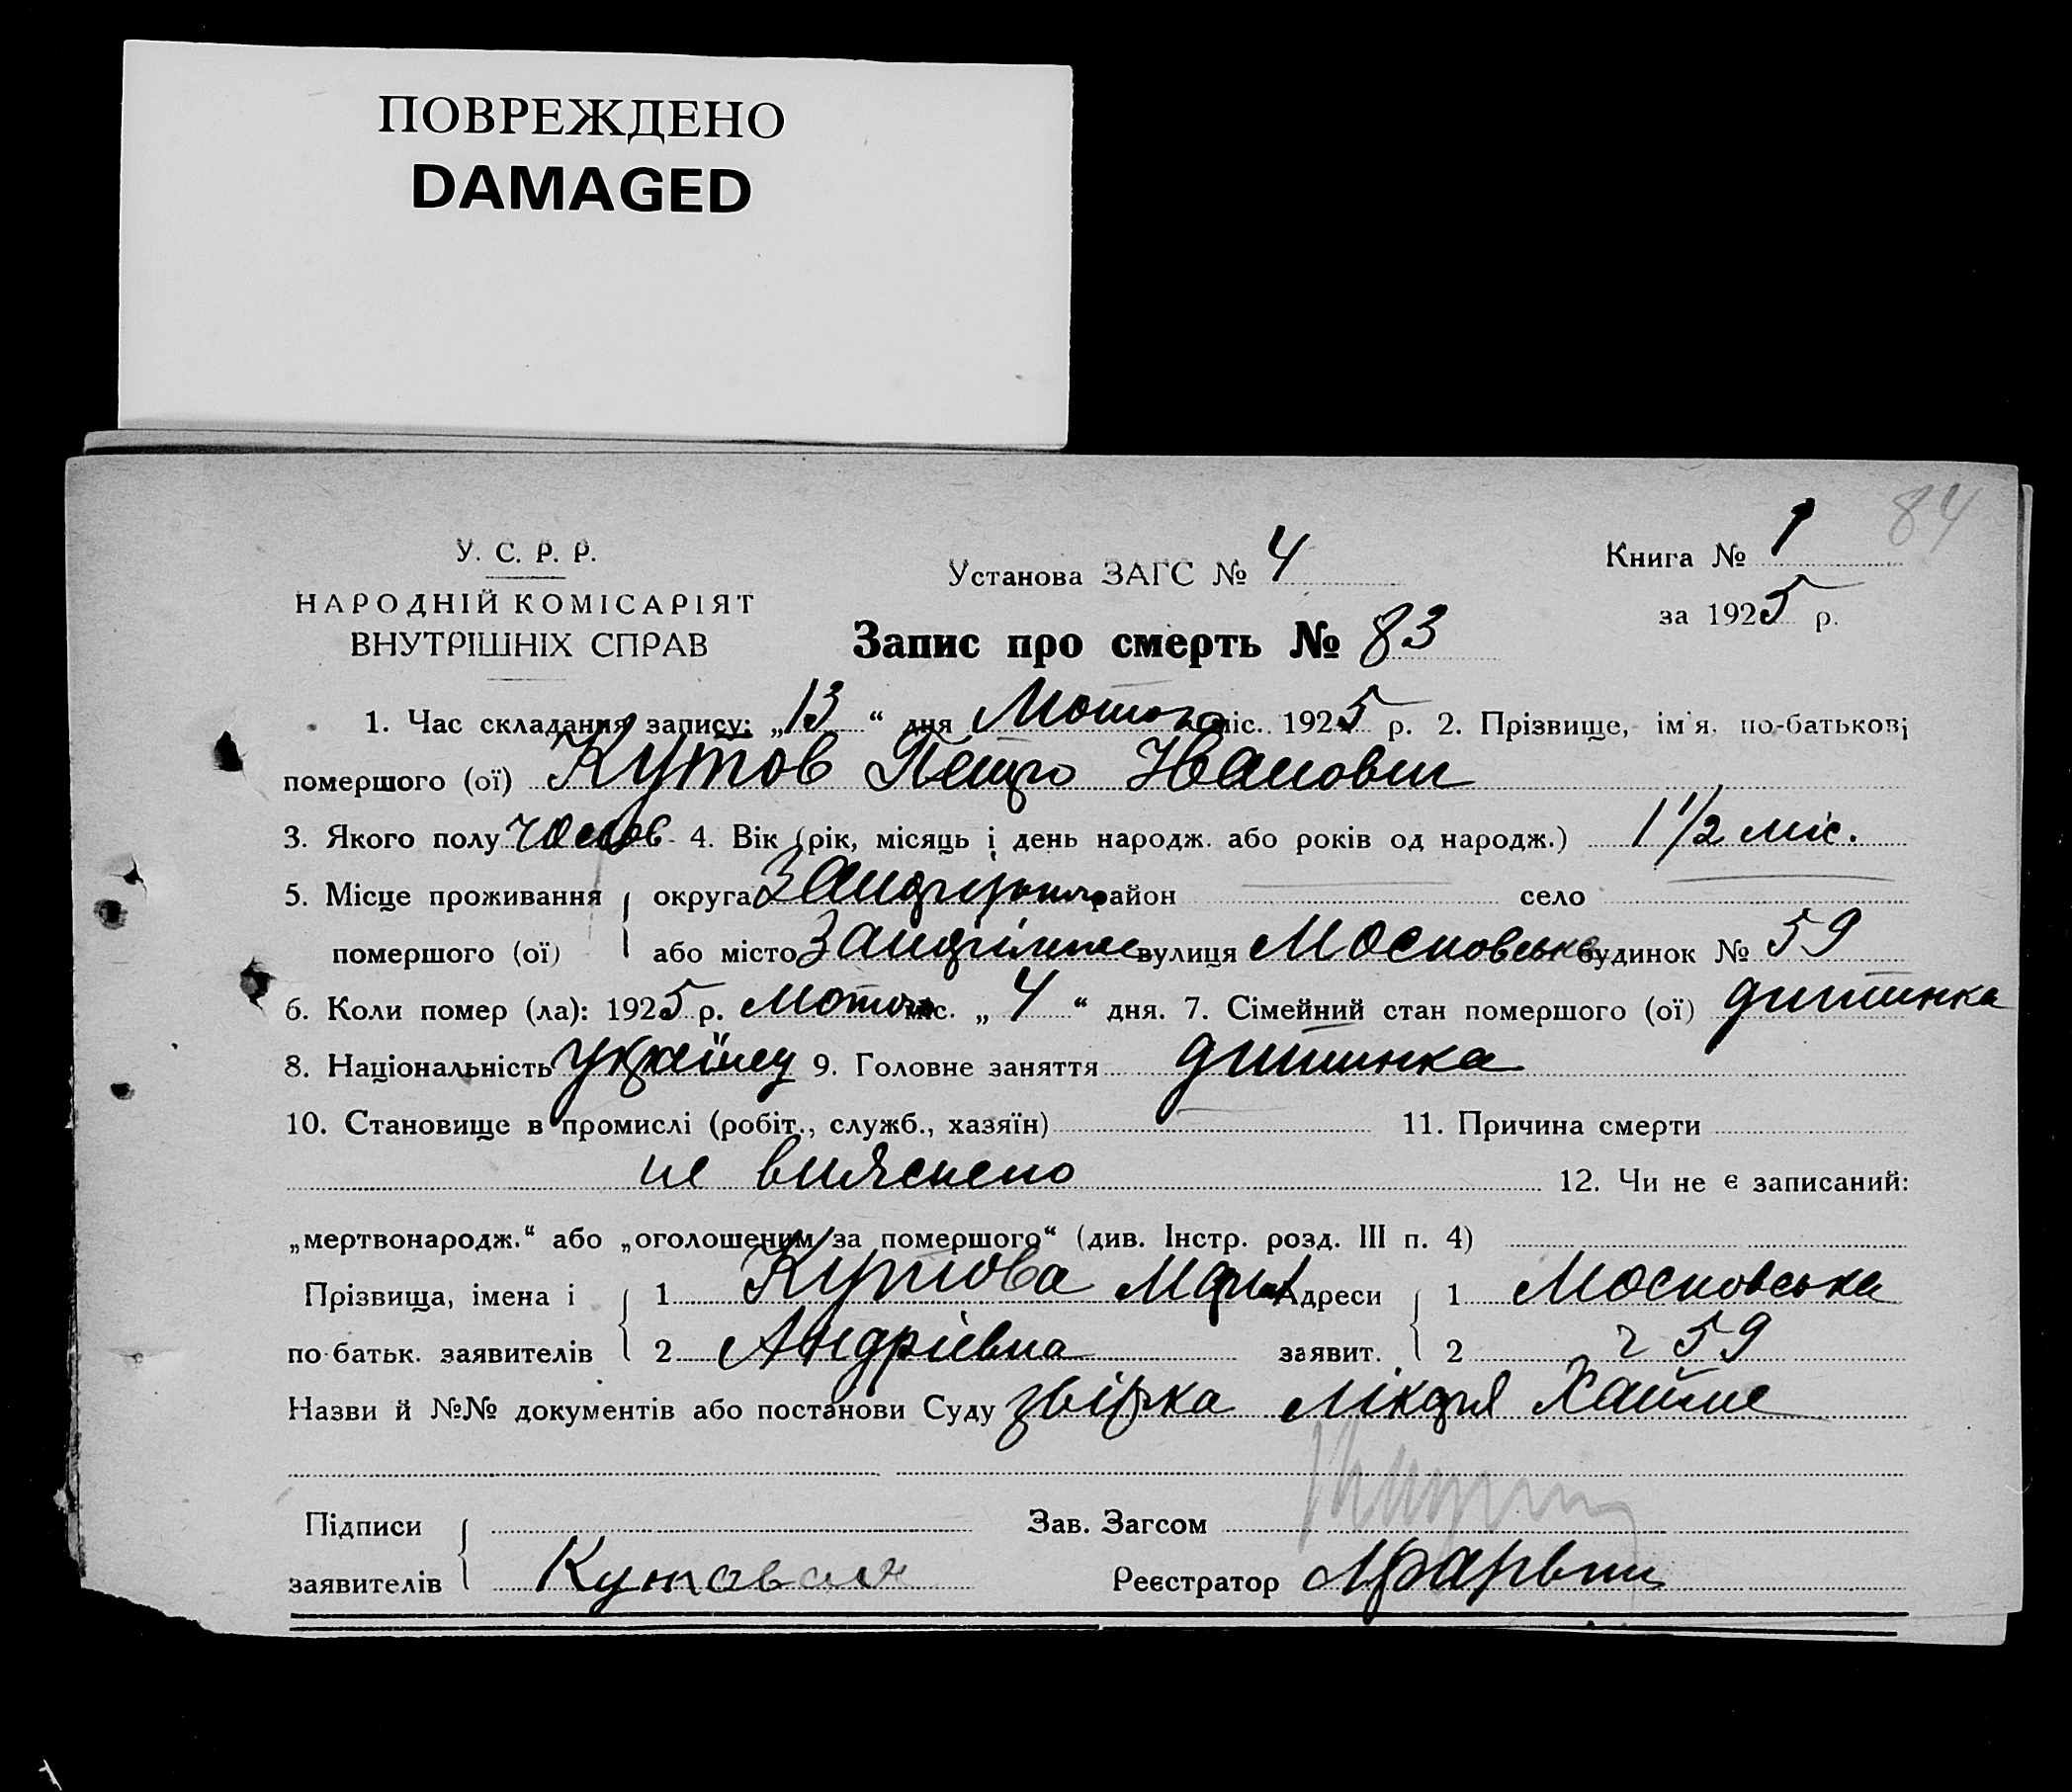 ПОВРЕЖДЕНО
DAMAGED
84
У. С. Р. Р.
НАРОДНІЙ КОМІСАРІЯТ
ВНУТРІШНІХ СПРАВ
Установа ЗАГС № 4
Книга № 1
за 1925 р.
Запис про смерть № 83
1. Час складання запису: „13“ дня Лютого міс. 1925 р. 2. Прізвище, ім'я, по-батькові
помершого (ої) Кутов Петро Іванович
3. Якого полу чолов 4. Вік (рік, місяць і день народж. або років од народж.) 1 1/2 міс.
5. Місце проживання округа район село
помершого (ої) або місто вулиця Московська будинок № 59
6. Коли помер (ла): 1925 р. Лютого міс. „4“ дня. 7. Сімейний стан помершого (ої) дитинка
8. Національність українец 9. Головне заняття дитинка
10. Становище в промислі (робіт., служб., хазяїн) 11. Причина смерти
не вияснено 12. Чи не є записаний:
„мертвонародж.“ або „оголошеним за помершого“ (див. Інстр. розд. III п. 4)
Прізвища, імена і 1 Кутова Мария Адреси 1 Московська
по-батьк. заявителів 2 Андріївна заявит. 2 ч 59
Назви й №№ документів або постанови Суду лікаря
Підписи Зав. Загсом
заявителів Кутовая Реєстратор